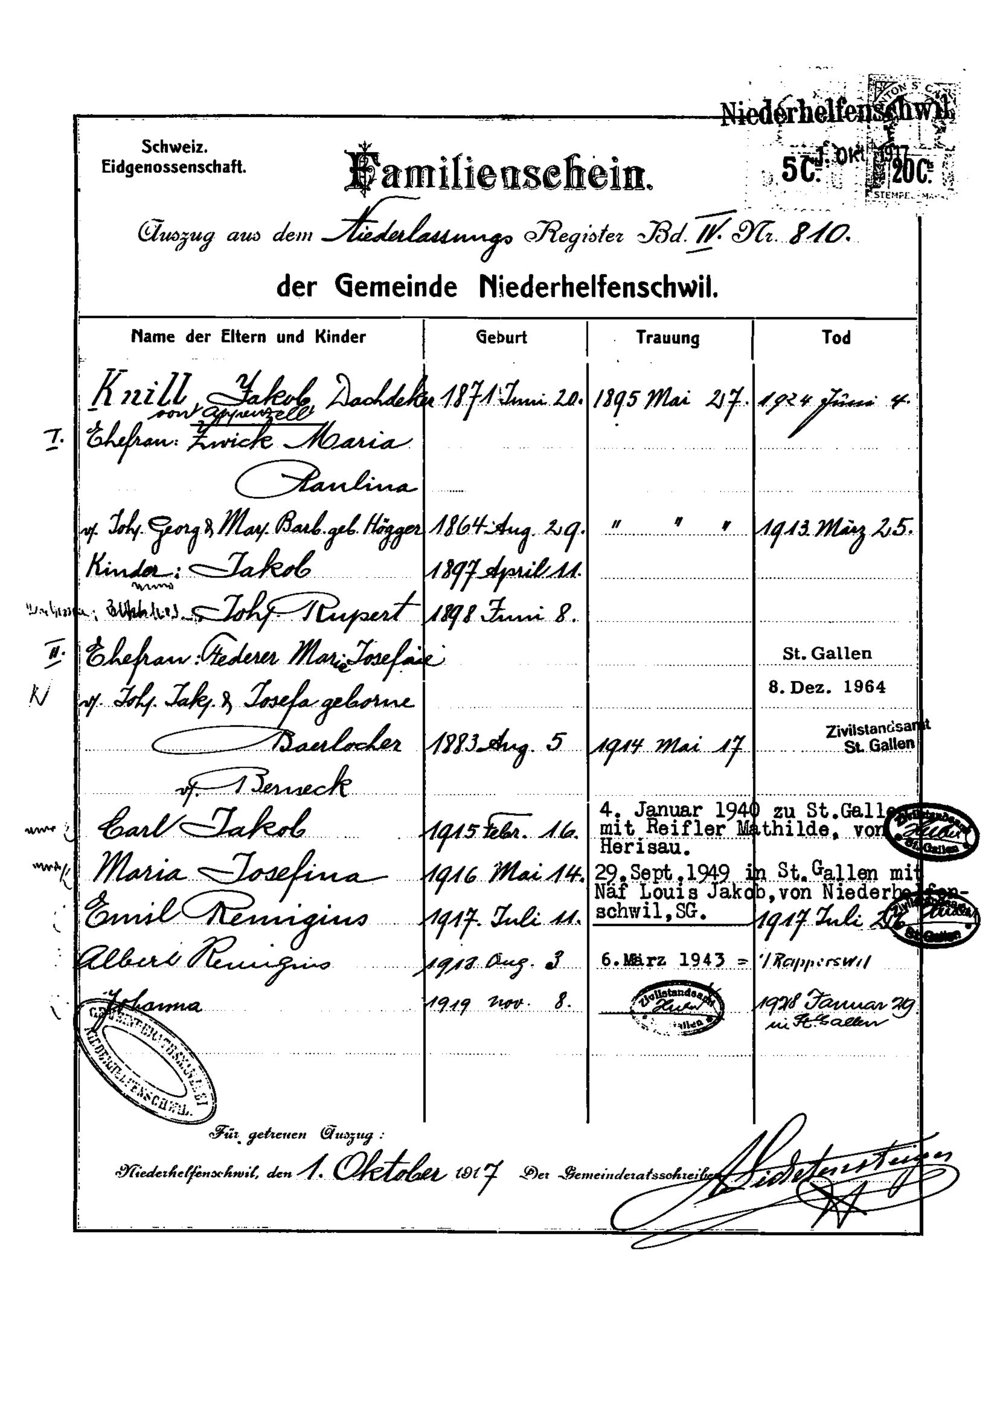 Niederhelfenschwil.
1. Okt. 1917
5 C. 20 C.
STEMPEL-MA
Schweiz.
Eidgenossenschaft.
Familienschein.
Auszug aus dem Niederlassungs Register Bd. IV. Nr. 810.
der Gemeinde Niederhelfenschwil.
Name der Eltern und Kinder Geburt Trauung Tod
Knill, Jakob Dachdeker 1871 Juni 20. 1895 Mai 27. 1924 Juni 4.
von Appenzell
I. Ehefrau: Zwick Maria
Paulina
v. Joh. Georg & Mar. Barb. geb. Högger 1864 Aug. 29. " " " 1913 März 25.
Kinder: Jakob 1897 April 11.
Joh. Rupert 1898 Juni 8.
II. Ehefrau: Federer Marie Josefa St. Gallen
v. Joh. Jak. & Josefa geborne 8. Dez. 1964
Baerlocher 1883 Aug. 5 1914 Mai 17 Zivilstandsamt
St. Gallen
v. Berneck
Carl Jakob 1915 Febr. 16. 4. Januar 1940 zu St.Galle
mit Reifler Mathilde, von
Herisau.
Maria Josefina 1916 Mai 14. 29.Sept.1949 in St.Gallen mit
Näf Louis Jakob,von Niederhelfen-
schwil,SG.
Emil Remigius 1917. Juli 11. 1917 Juli 27
Albert Remigius 1918 Aug. 3 6.März 1943 = 1/Rapperswil
Johanna 1919 Nov. 8. 1928 Januar 29
in St. Gallen
Zivilstandsamt
St. Gallen
GEMEINDERATSKANZLEI
NIEDERHELFENSCHWIL.
Für getreuen Auszug:
Niederhelfenschwil, den 1. Oktober 1917 Der Gemeinderatsschreiber